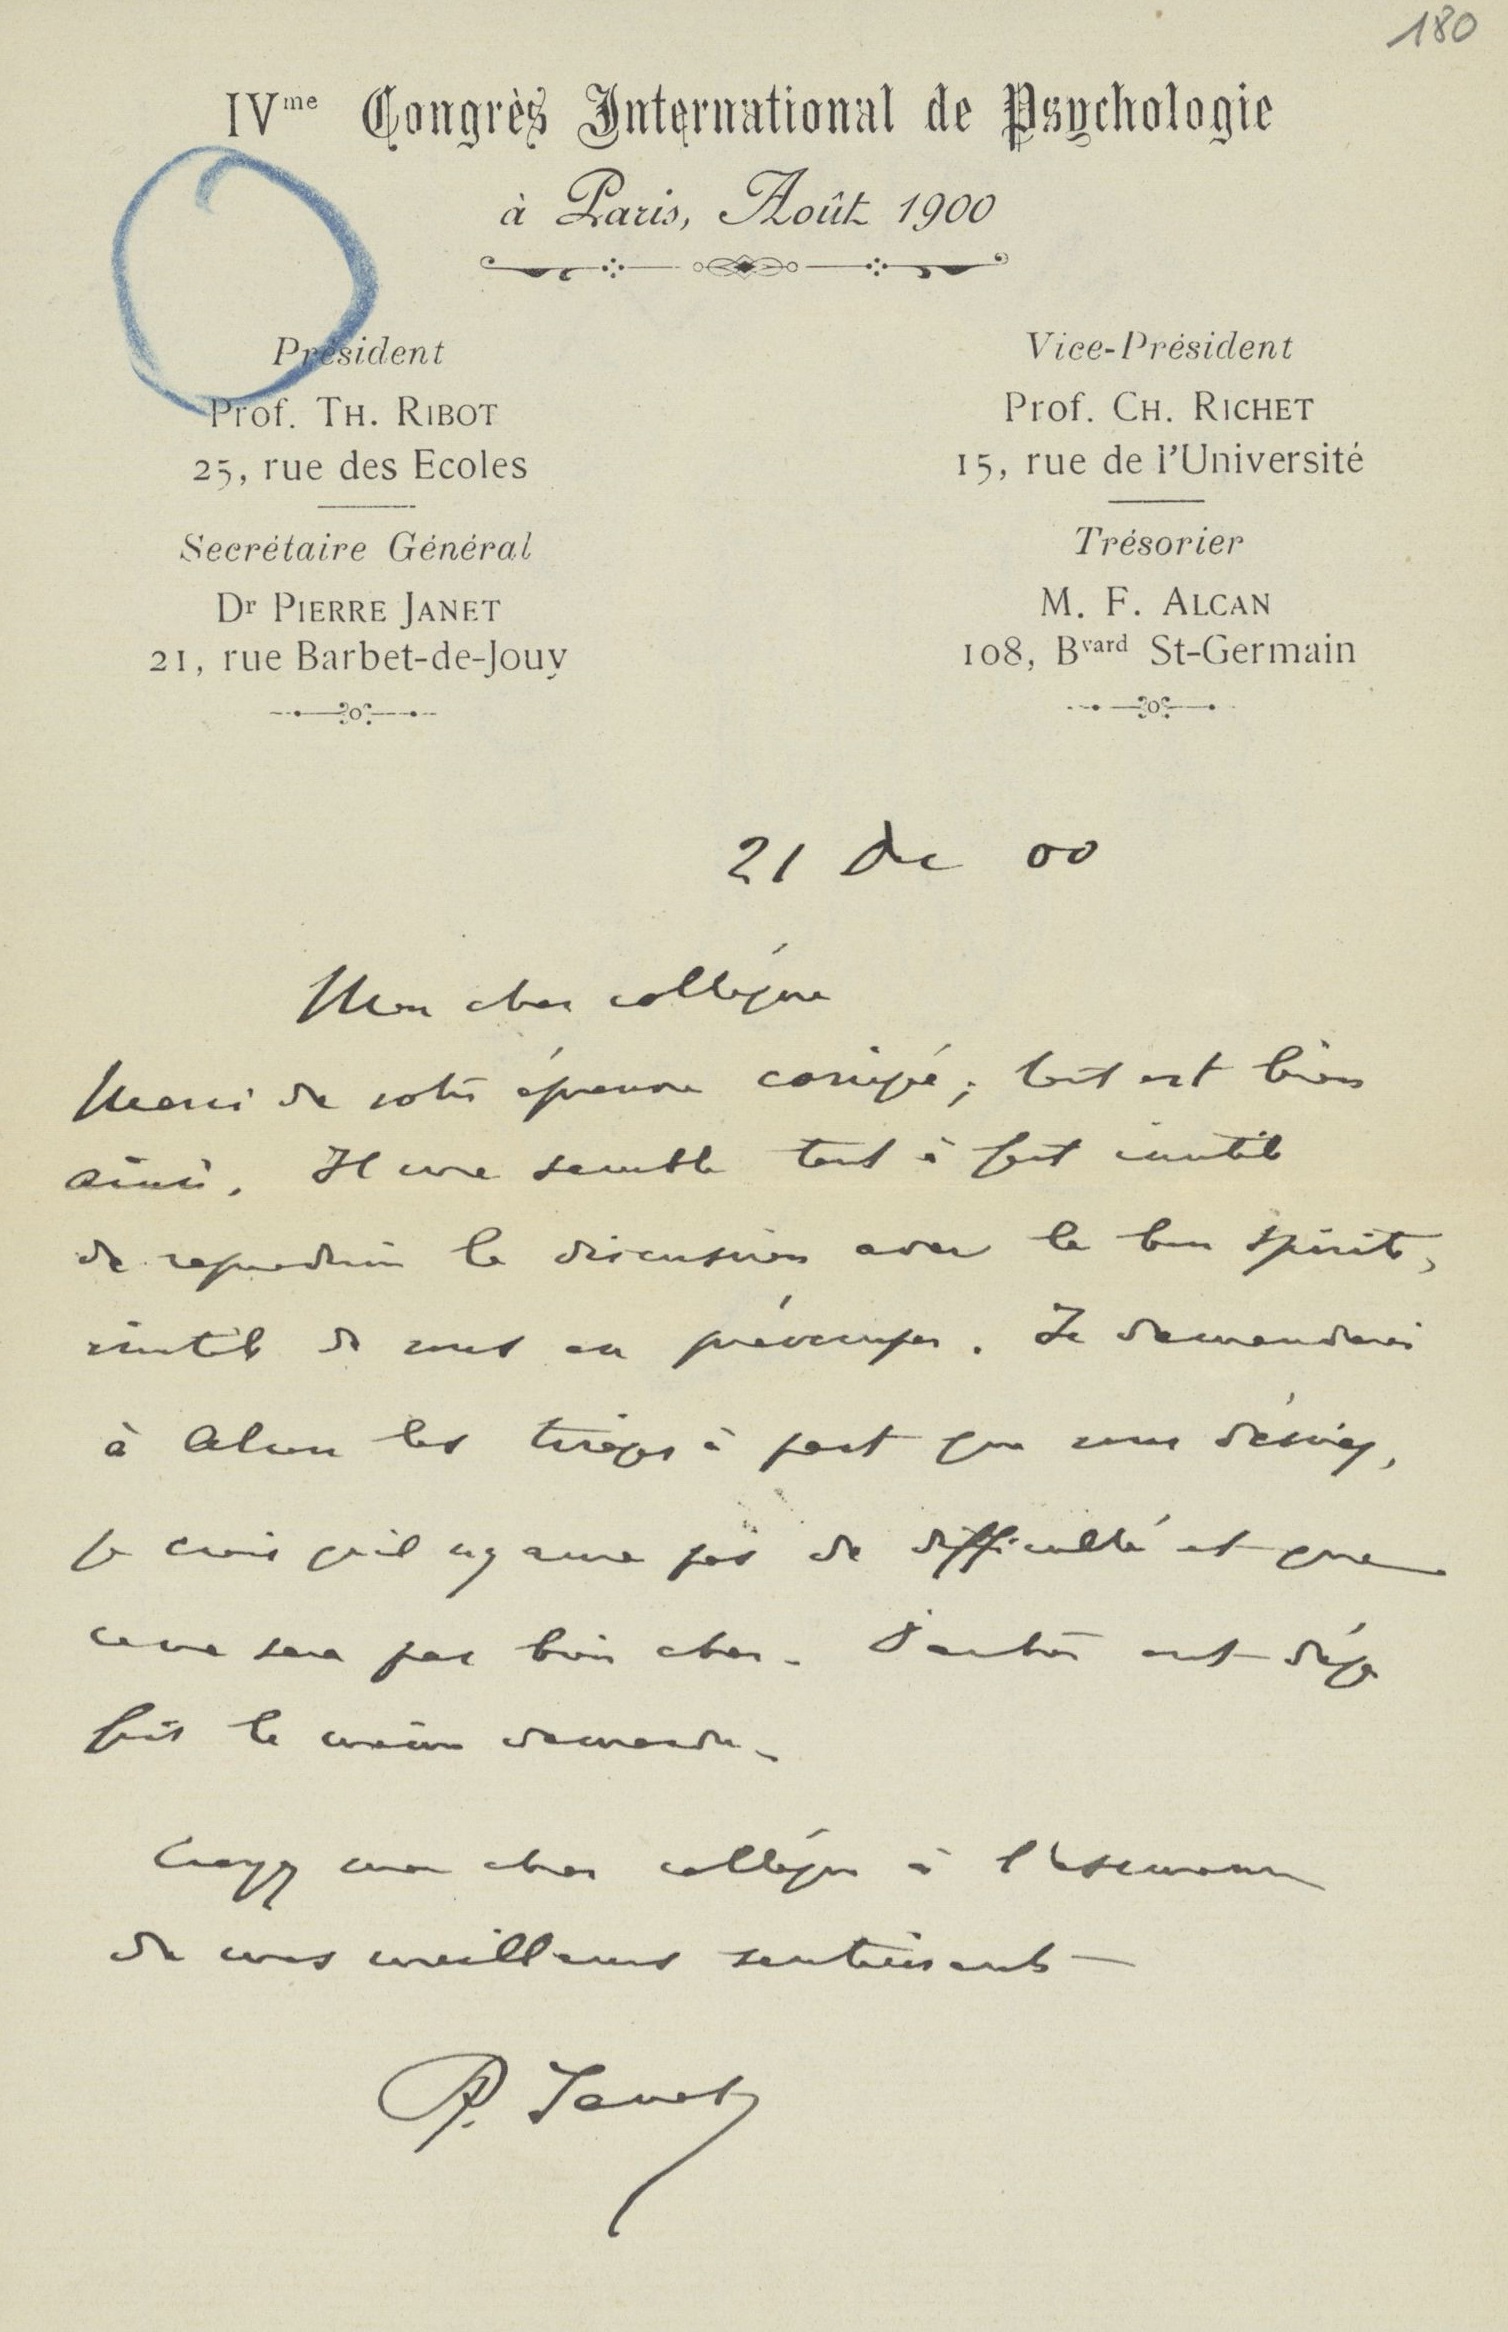 180
IVme Congrès International de Psychologie
à Paris, Août 1900
Président
Prof. TH. RIBOT
25, rue des Ecoles
Secrétaire Général
Dr PIERRE JANET
21, rue Barbet-de-Jouy
Vice-Président
Prof. CH. RICHET
15, rue de l'Université
Trésorier
M. F. ALCAN
108, Bvard St-Germain
21 Dec 00
Mon cher collègue
Merci de votre épreuve corrigée; tout est bien
ainsi. Il me semble tout à fait inutile
de reproduire la discussion avec le bon spirite,
inutile de vous en préoccuper. Je demanderai
à Alcan les tirages à part que vous désirez,
je crois qu'il n'y aura pas de difficulté et que
ce ne sera pas bien cher. D'autres ont déjà
fait la même demande.
Croyez mon cher collègue à l'assurance
de mes meilleurs sentiments
P. Janet